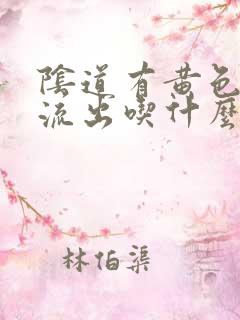 陰道有黃色
流出喫什麼
林伯渠